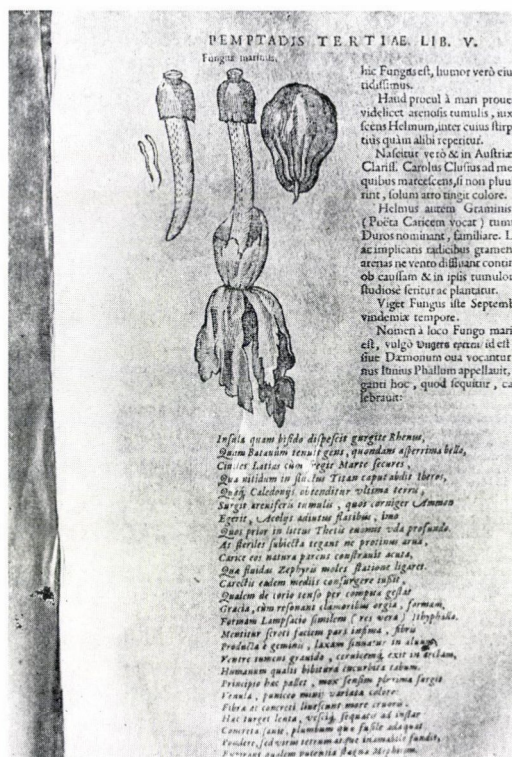 PEMPTADIS TERTIAE. LIB. V.
Fungus marinus.
hic Fungus est, humor verò eiu
tidissimus.
Haud procul à mari proue
videlicet arenosis tumulis, iux
scens Helmum, inter cuius stirp
tius quàm alibi reperitur.
Nascitur verò & in Austriæ
Clariss. Carolus Clusius ad me
quibus marcescens, si non pluu
rint, solum atro tingit colore.
Helmus autem Graminis
(Poëta Caricem vocat) tumu
Duros nominant, familiare. L
ac implicans radicibus gramen
arenas ne vento diffluant contin
ob caussam & in ipsis tumulor
studiosè seritur ac plantatur.
Viget Fungus iste Septemb
vindemiæ tempore.
Nomen à loco Fungo mari
est, vulgò Ungers id est
siue Dæmonum oua vocantur
nus Iunius Phallum appellauit,
ganti hoc, quod sequitur, ca
lebrauit:
Insula quam bifido dispescit gurgite Rhenus,
Quam Batauûm tenuit gens, quondam asperrima bello,
Cum Latias cùm fregit Marte secures,
Qua nitidum in fluctus Titan caput abdit Iberos,
Quaque Caledonys obtenditur vltima terris,
Surgit areniferis tumulis, quos corniger Ammon
Egerit, Aeolys adiutus flatibus, imo
Quos prior in littus Thetis euomit vda profundo.
At steriles subiecta tegant ne protinus arua,
Carice eos natura parens constrauit acuta,
Qua fluidas Zephyris moles statione ligaret.
Carectis eadem medijs consurgere iussit,
Qualem de corio tenso per compita gestat
Græcia, cùm resonant clamoribus orgia, formam,
Formam Lampsacio similem (res vera) Ithyphallo.
Mentitur scroti faciem pars infima, fibris
Producta è geminis, laxam sinuatur in aluum,
Ventre tumens grauido, ceruicemq; exit in arctam,
Humanum qualis bibitura cucurbita tabum.
Principio hæc pallet, mox sensim plurima surgit
Venula, puniceo minij variata colore:
Fibra at concreti liuescunt more cruoris.
Hac turget lenta, vescica sequax ad instar
Concreta saniè, plumbum quæ fusile adæquat
Pondere, sed virus tetrum atque inamabile fundit,
Exspirant qualem putentia stagna Mephitim.